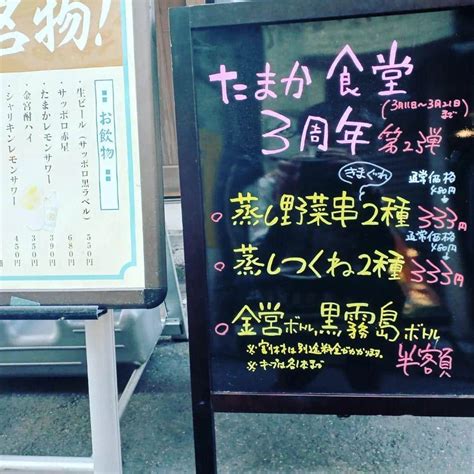 名物!
お飲物
生ビール(サッポロ黒ラベル) 550
サッポロ赤星 680
たまかレモンサワー 390
金宮酎ハイ 350
シャリキンレモンサワー 450
たまか食堂
3周年 第2弾
(3月11日〜3月21日)まで
きまぐれ
通常価格
480円
蒸し野菜串2種 333円
通常価格
480円
蒸しつくね2種 333円
金宮ボトル,黒霧島ボトル
半額
※割材は別途料金がかかります。
※キープは各1本まで